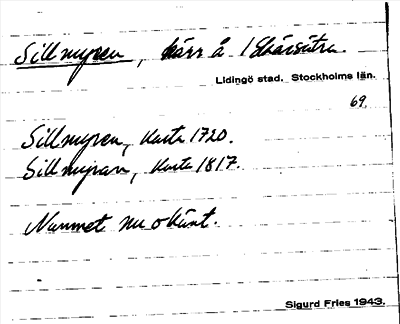 Sillmyren, kärr å 1 Ekårsätra.
Lidingö stad. Stockholms län.
69.
Sillmyren, karta 1720.
Sillmyran, karta 1817.
Namnet nu okänt.
Sigurd Fries 1943.